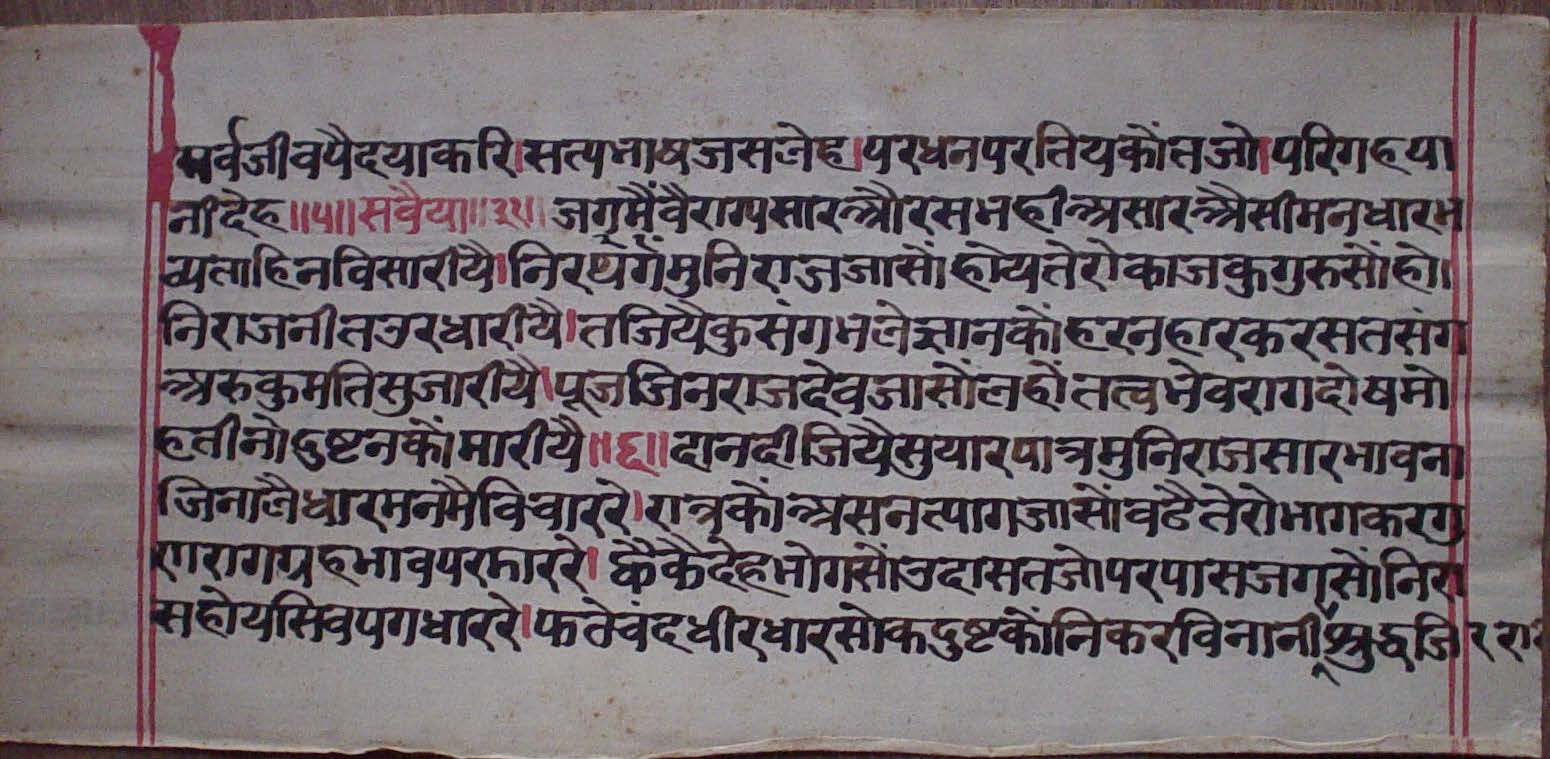 सर्वजीवपैदयाकरि।सत्यभाषजसलेह।परधनपरतियकौंतजो।परिगहपा
नीदेह॥५॥सवैया॥३१॥जग्मैंवैराग्यसारऔरसभहीअसारऐसीमनधारभ
व्यताहिनविसारीयै।निरग्रंथमुनिराजजासौंहोयतेरोकाजकुगुरुसौंहो।
निराजनीतउरधारीयै।तजियैकुसंगभलेज्ञानकौंहरनहारकरसतसंग
अरुकुमतिसुजारीयै।पूजजिनराजदेवजासौंलहौंतत्वभेवरागदोषमो
हतीनोदुष्टनकौंमारीयै॥६॥दानदीजियैसुयारपात्रमुनिराजसारभावना
जिनालैधारमनमैविचाररे।रात्रकौंअसनत्यागजासौंवढैतेरोभागकरगु
णरागग्रहभावपरजाररे।ह्वैकैदेहभोगसौंउदासतजोपरपासजग्सौंनिरा
सहोयसिवपगधाररे।फतेचंदधीरधारसोकदुष्टकौंनिकरविनानी